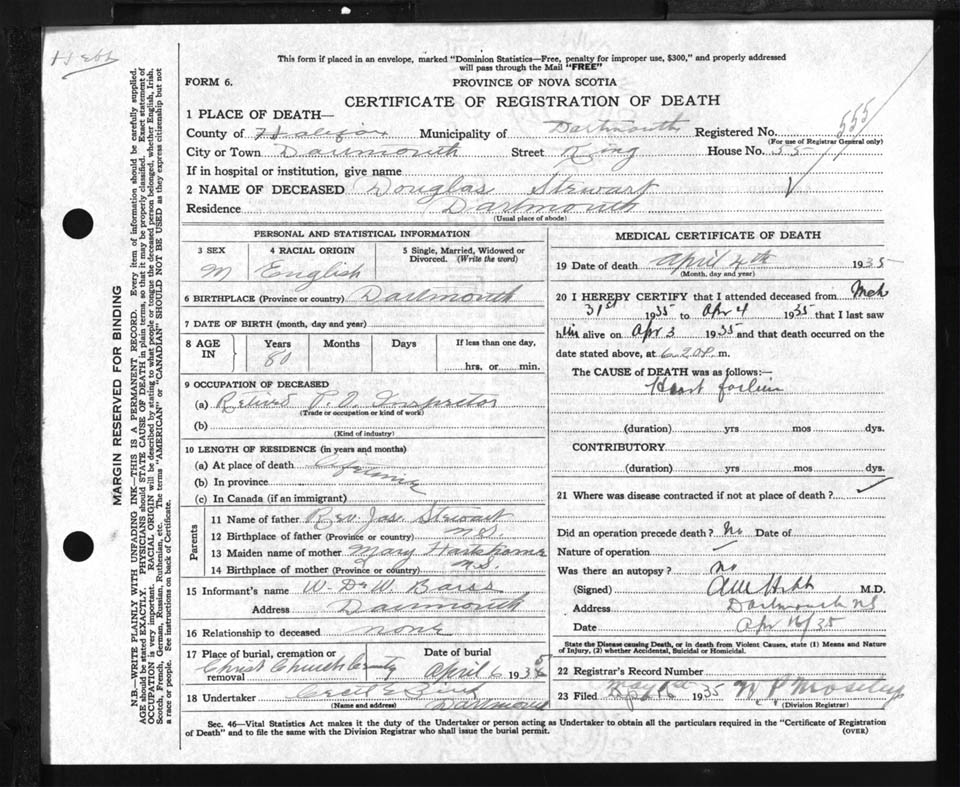 Hebb
This form if placed in an envelope, marked "Dominion Statistics—Free, penalty for improper use, $300," and properly addressed
will pass through the Mail "FREE"
FORM 6.
PROVINCE OF NOVA SCOTIA
CERTIFICATE OF REGISTRATION OF DEATH
555
1 PLACE OF DEATH—
County of Halifax Municipality of Dartmouth Registered No.
(For use of Registrar General only)
City or Town Dartmouth Street King House No. 35
If in hospital or institution, give name
2 NAME OF DECEASED Douglas Stewart
Residence Dartmouth
(Usual place of abode)
PERSONAL AND STATISTICAL INFORMATION
3 SEX 4 RACIAL ORIGIN 5 Single, Married, Widowed or
Divorced. (Write the word)
M English
6 BIRTHPLACE (Province or country) Dartmouth
7 DATE OF BIRTH (month, day and year)
8 AGE IN Years Months Days If less than one day,
80 hrs. or min.
9 OCCUPATION OF DECEASED
(a) Retired P.O. Inspector
(Trade or occupation or kind of work)
(b)
(Kind of industry)
10 LENGTH OF RESIDENCE (in years and months)
(a) At place of death Lifetime
(b) In province
(c) In Canada (if an immigrant)
Parents
11 Name of father Rev. Jas. Stewart
12 Birthplace of father (Province or country) N.S.
13 Maiden name of mother Mary
14 Birthplace of mother (Province or country) N.S.
15 Informant's name W. De W. Barss
Address Dartmouth
16 Relationship to deceased none
17 Place of burial, cremation or removal Date of burial
Christ Church Cemetery April 6 1935
18 Undertaker Cecil E.
(Name and address) Dartmouth
MEDICAL CERTIFICATE OF DEATH
19 Date of death April 4th 1935
(Month, day and year)
20 I HEREBY CERTIFY that I attended deceased from Mch
31st 1935 to Apr 4 1935 that I last saw
him alive on Apr 3 1935 and that death occurred on the
date stated above, at 6.20 P. m.
The CAUSE of DEATH was as follows:—
Heart failure
(duration) yrs mos dys.
CONTRIBUTORY
(duration) yrs mos dys.
21 Where was disease contracted if not at place of death?
Did an operation precede death? No Date of
Nature of operation
Was there an autopsy? no
(Signed) Hebb M.D.
Address Dartmouth NS
Date Apr 16/35
State the Disease causing Death, or in death from Violent Causes, state (1) Means and Nature
of Injury, (2) whether Accidental, Suicidal or Homicidal.
22 Registrar's Record Number
23 Filed 1935 Moseley
(Division Registrar)
Sec. 46—Vital Statistics Act makes it the duty of the Undertaker or person acting as Undertaker to obtain all the particulars required in the "Certificate of Registration
of Death" and to file the same with the Division Registrar who shall issue the burial permit.
(OVER)
MARGIN RESERVED FOR BINDING
N.B.—WRITE PLAINLY WITH UNFADING INK—THIS IS A PERMANENT RECORD. Every item of information should be carefully supplied.
AGE should be stated EXACTLY. PHYSICIANS should STATE CAUSE OF DEATH in plain terms, so that it may be properly classified. Exact statement of
OCCUPATION is very important. RACIAL ORIGIN will be described by stating to what people or tongue the deceased person belonged, whether English, Irish,
Scotch, French, German, Russian, Ruthenian, etc. The terms "AMERICAN" or "CANADIAN" SHOULD NOT BE USED as they express citizenship but not
a race or people. See instructions on back of Certificate.